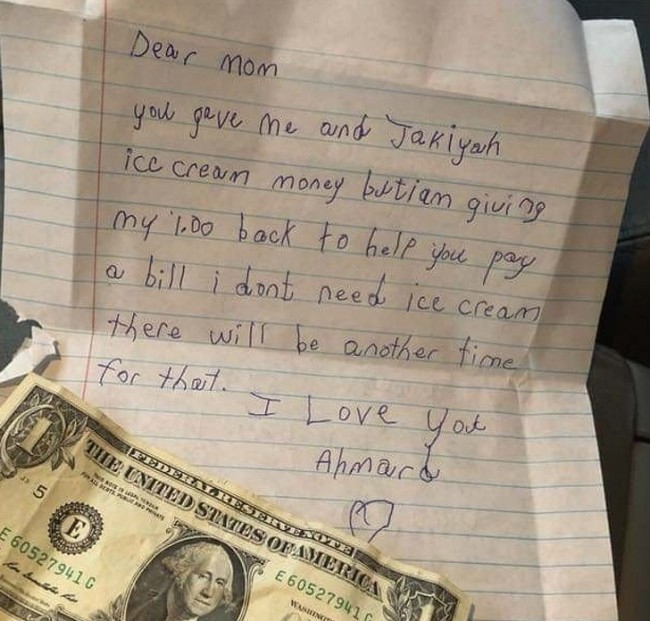 Dear mom
you gave me and Jakiyah
ice cream money but iam giving
my 1.00 back to help you pay
a bill i dont need ice cream
there will be another time
for that.
I Love you
Ahmard
FEDERAL RESERVE NOTE
THE UNITED STATES OF AMERICA
THIS NOTE IS LEGAL TENDER
FOR ALL DEBTS, PUBLIC AND PRIVATE
1
5
E
E 60527941 G
E 60527941 G
WASHING
1